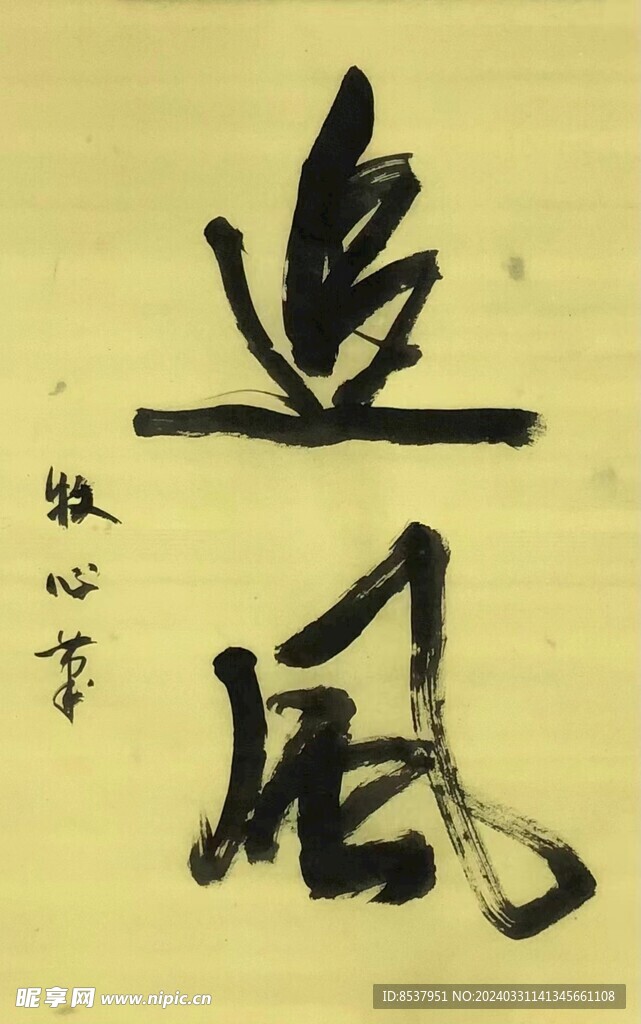 追风
牧心笔
昵享网 www.nipic.cn
ID:8537951 NO:20240331141345661108